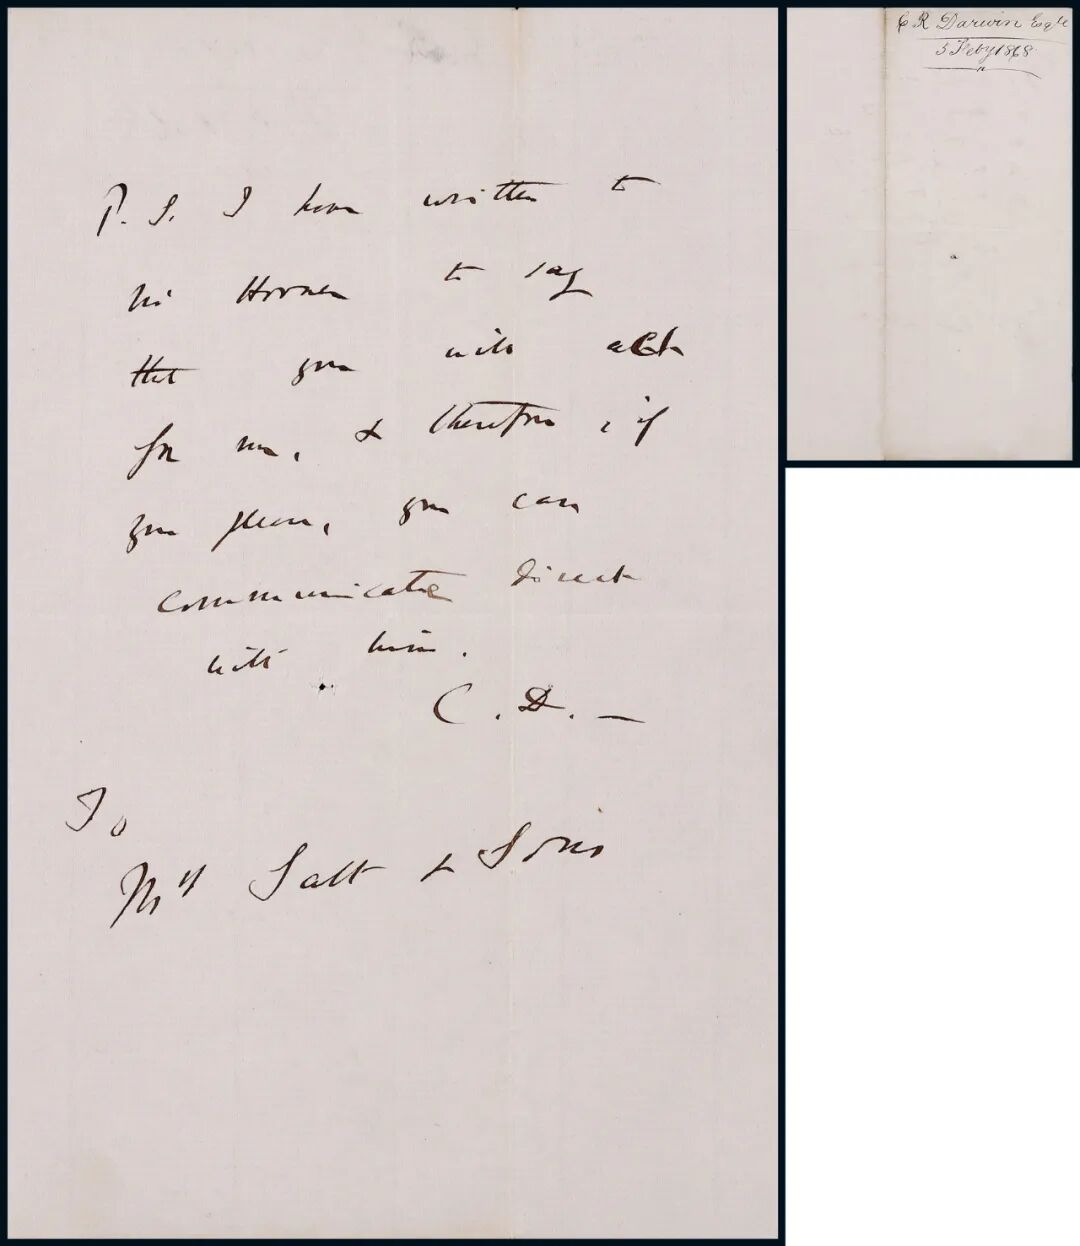 P.S. I have written to
Mr Horner to say
that you will act
for me, & therefore, if
you please, you can
communicate direct
with him.
C. D. —
To
Mrs Salt & Sons
C R Darwin Esqre
5 Feby 1868